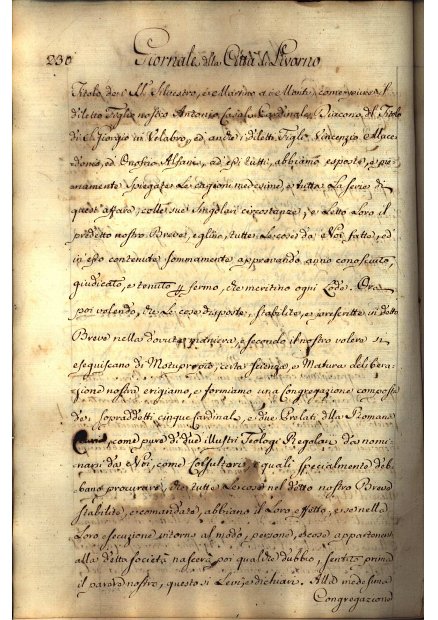 230 Giornale della Città di Livorno
Titolo de' SS. Silvestro, e Martino a i Monti, come pure il
diletto Figlio nostro Antonio Casali Cardinale Diacono del Titolo
di S. Giorgio in Velabro, ed anche i diletti Figli Vincenzio Mace-
donio, ed Onofrio Alfani, ed essi tutti, abbiamo esposte, e pie-
namente spiegate le cagioni medesime, e tutta la serie di
quest'affare, colle sue singolari circostanze, e letto loro il
predetto nostro Breve, e glino, tutte le cose da Noi fatte, ed
in esso contenute sommamente approvando, anno conosciuto,
giudicato, e tenuto p fermo, che meritino ogni Lode. Ora
poi volendo, che le cose disposte, stabilite, e prescritte in detto
Breve nella dovuta maniera, e secondo il nostro volere si
eseguiscano di Motuproprio, certa scienza, e Matura delibera-
zione nostra erigiamo, e formiamo una Congregazione composta
de' sopraddetti cinque Cardinali, e due Prelati della Romana
Curia, come pure di due illustri Teologi Regolari da nomi-
narsi da Noi, come Consultori, i quali specialmente deb-
bano procurare, che tutte le cose nel detto nostro Breve
stabilite, e comandate, abbiano il Loro effetto, e se nella
Loro esecuzione intorno al modo, persone, e cose appartenenti
alla detta società nascerà poi qualche dubbio, sentito prima
il parere nostro, questo si levi, e dichiari. Alla medesima
Congregazione